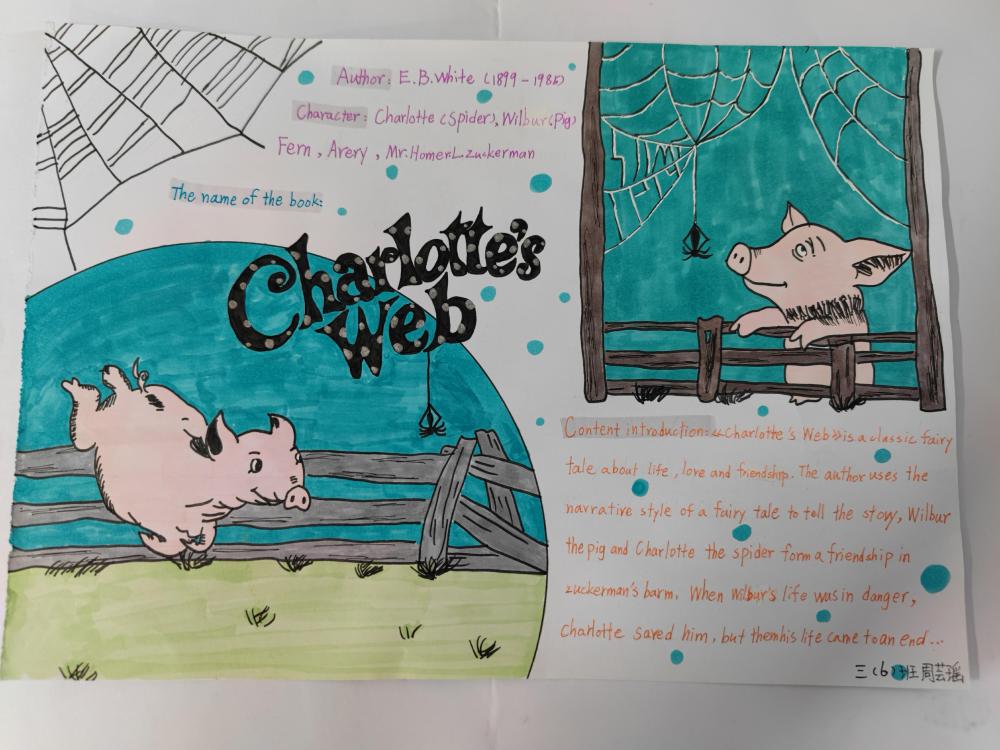 Author: E.B.White (1899-1985)
Character: Charlotte (Spider), Wilbur (Pig)
Fern, Avery, Mr.Homer L.zuckerman
The name of the book:
Charlotte's
Web
Content introduction: 《Charlotte's Web》 is a classic fairy
tale about life, love and friendship. The author uses the
narrative style of a fairy tale to tell the story, Wilbur
the pig and Charlotte the spider form a friendship in
zuckerman's barm. When Wilbur's life was in danger,
Charlotte saved him, but themhis life came to an end...
三(6)班周芸瑶